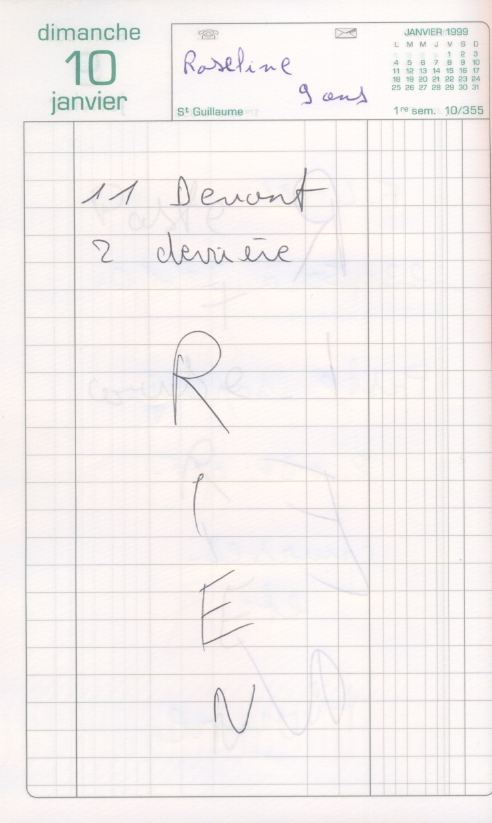 dimanche
10
janvier
Roseline
9 ans
St Guillaume
JANVIER 1999
L M M J V S D
1 2 3
4 5 6 7 8 9 10
11 12 13 14 15 16 17
18 19 20 21 22 23 24
25 26 27 28 29 30 31
1re sem. 10/355
11 Devant
2 derrière
R
I
E
N